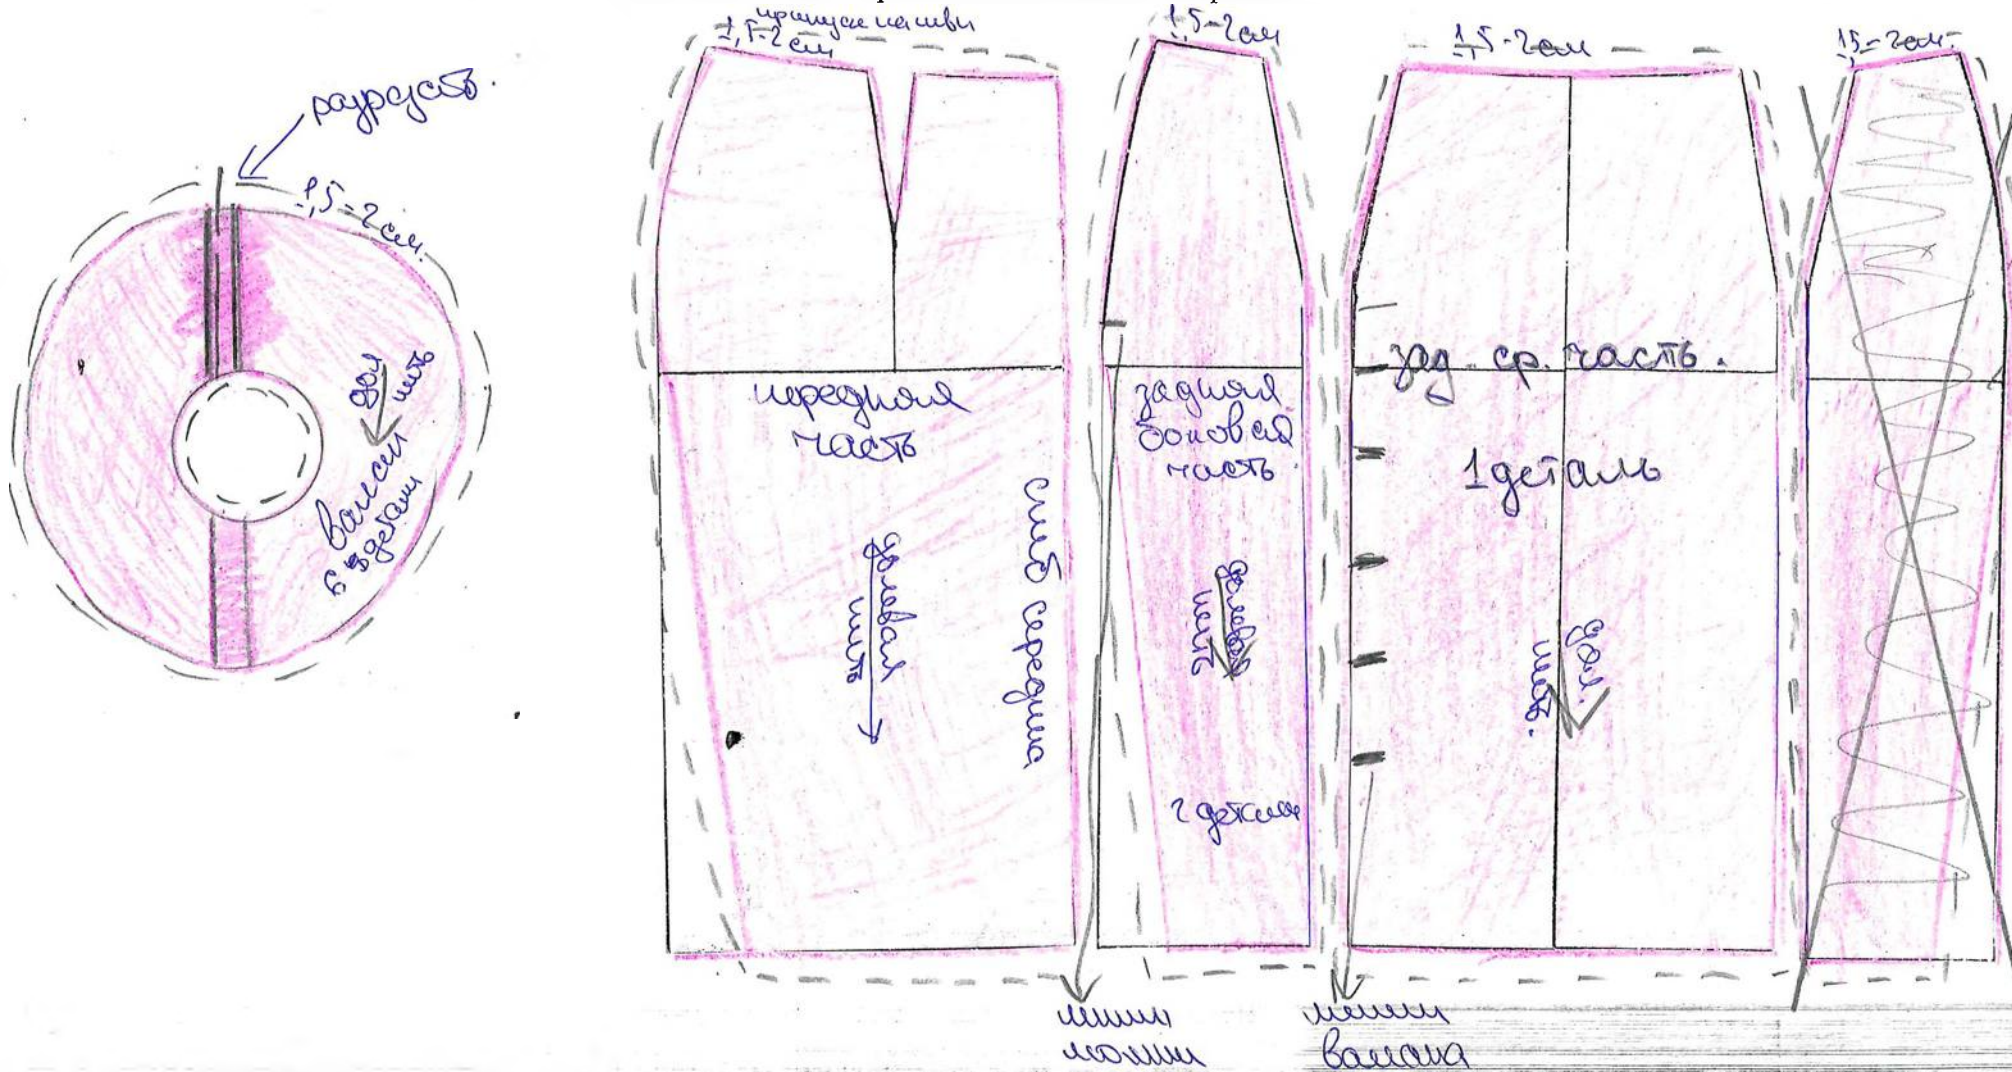 разрезать.
1,5-2см.
дол
нить
волан
6 детали
припуск на швы
1,5-2см
передняя
часть
сгиб середина
долевая
нить
1,5-2см
задняя
боковая
часть
долевая
нить
2 детали
1,5-2см
зад. ср. часть.
1 деталь
дол.
нить.
1,5-2см.
линия
молнии
линия
волана